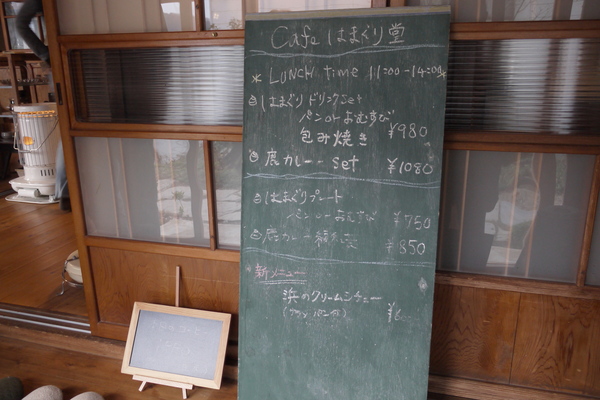 Cafe はまぐり堂
* LUNCH time 11:00-14:00
はまぐり ドリンクset
パン or おむすび
包み焼き ¥980
鹿カレー set ¥1080
はまぐりプレート
パン or おむすび ¥750
鹿カレー ¥850
新メニュー
浜のクリームシチュー